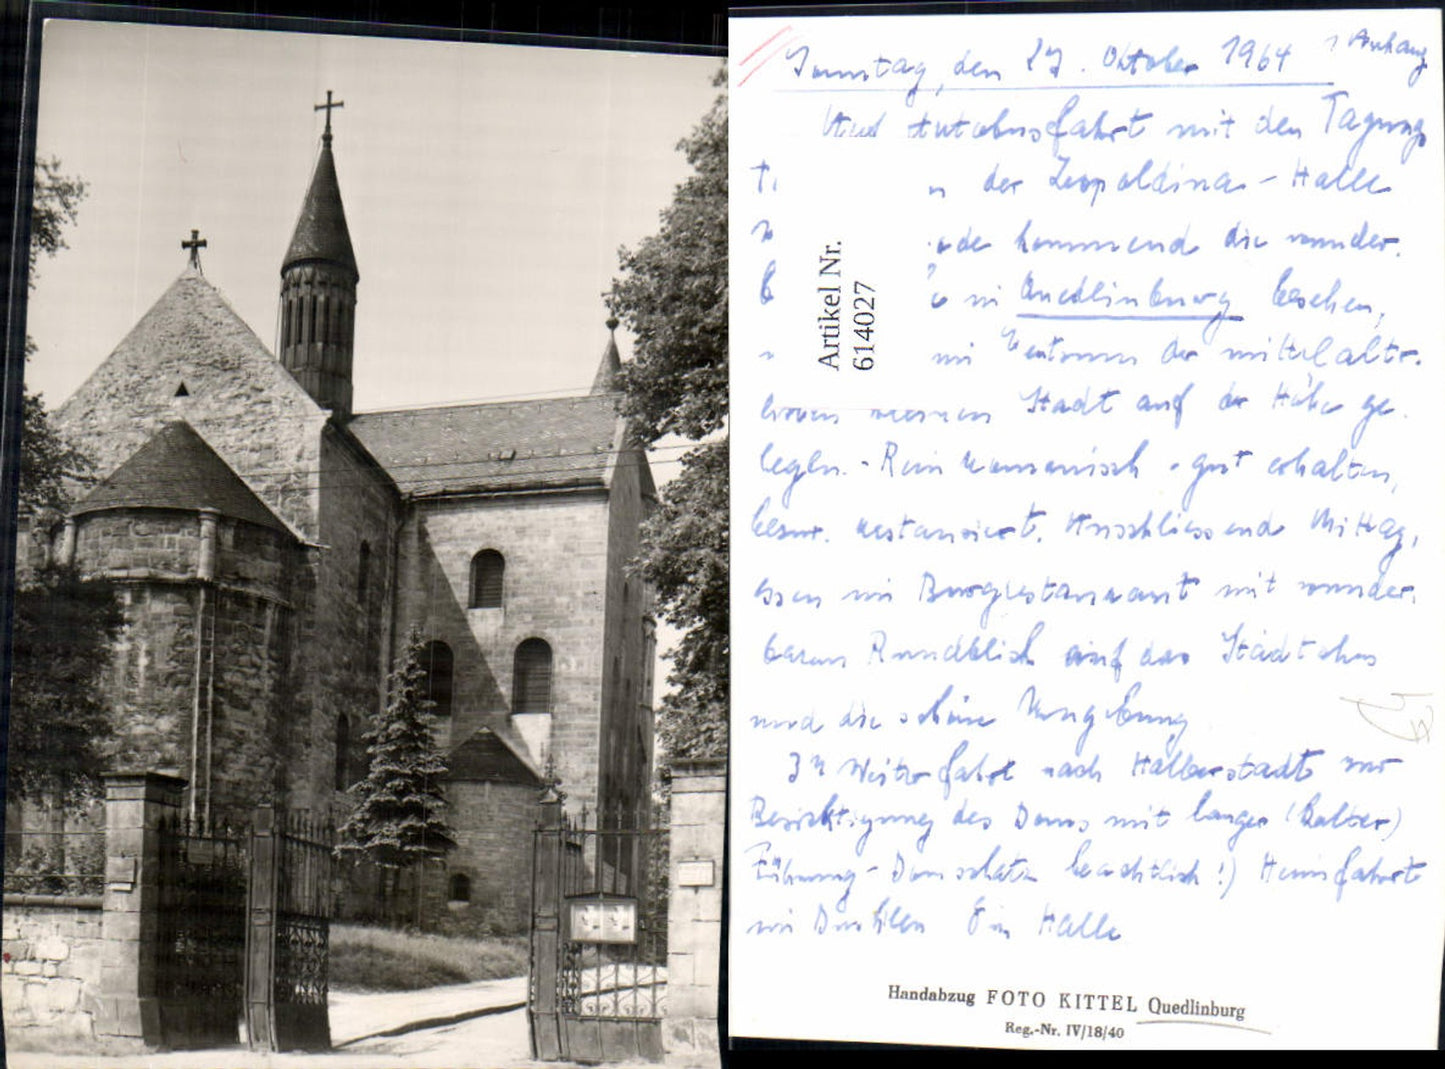 Sonntag, den 27. Oktober 1964 1 Anhang
Autobusfahrt mit den Tagungs
der Leopoldina - Halle
kommend die wunder.
in Quedlinburg besehen,
im Zentrum der mittelalter.
Stadt auf der Höhe ge.
legen. - Rein romanisch - gut erhalten,
bezw. restauriert. Anschliessend Mittag,
essen im Burgrestaurant mit wunder.
barem Rundblick auf das Städtchen
und die schöne Umgebung
3h Weiterfahrt nach Halberstadt zur
Besichtigung des Doms mit langer (kalter)
Führung - Domschatz beachtlich!) Heimfahrt
im Dunklen in Halle
Artikel Nr.
614027
Handabzug FOTO KITTEL Quedlinburg
Reg.-Nr. IV/18/40